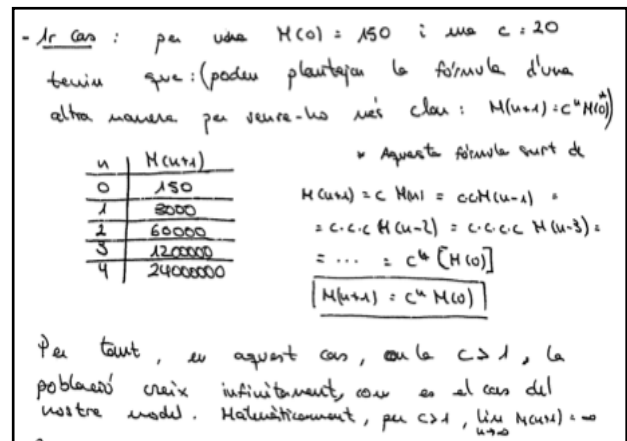 - 1r cas : per una M(0) = 150 i una c = 20
tenim que : (podem plantejar la fórmula d'una
altra manera per veure-ho més clar : M(n+1) = cⁿ M(0)*)
* Aquesta fórmula surt de
n | M(n+1)
0 | 150
1 | 3000
2 | 60000
3 | 1200000
4 | 24000000
M(n+1) = c M(n) = c c M(n-1) =
= c.c.c M(n-2) = c.c.c.c M(n-3) =
= ... = cⁿ [M(0)]
M(n+1) = cⁿ M(0)
Per tant, en aquest cas, on la c > 1, la
població creix infinitament, com es el cas del
nostre model. Matemàticament, per c>1, lim M(n+1) = ∞
n→∞